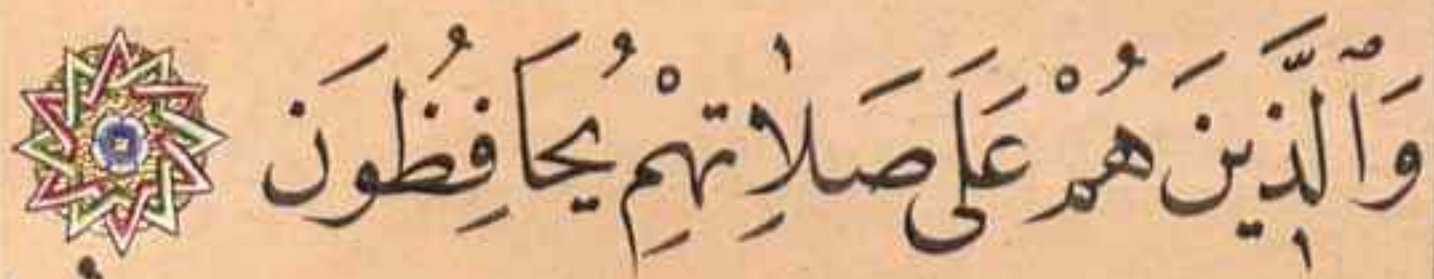 وَٱلَّذِينَ هُمْ عَلَى صَلَاتِهِمْ يُحَافِظُونَ